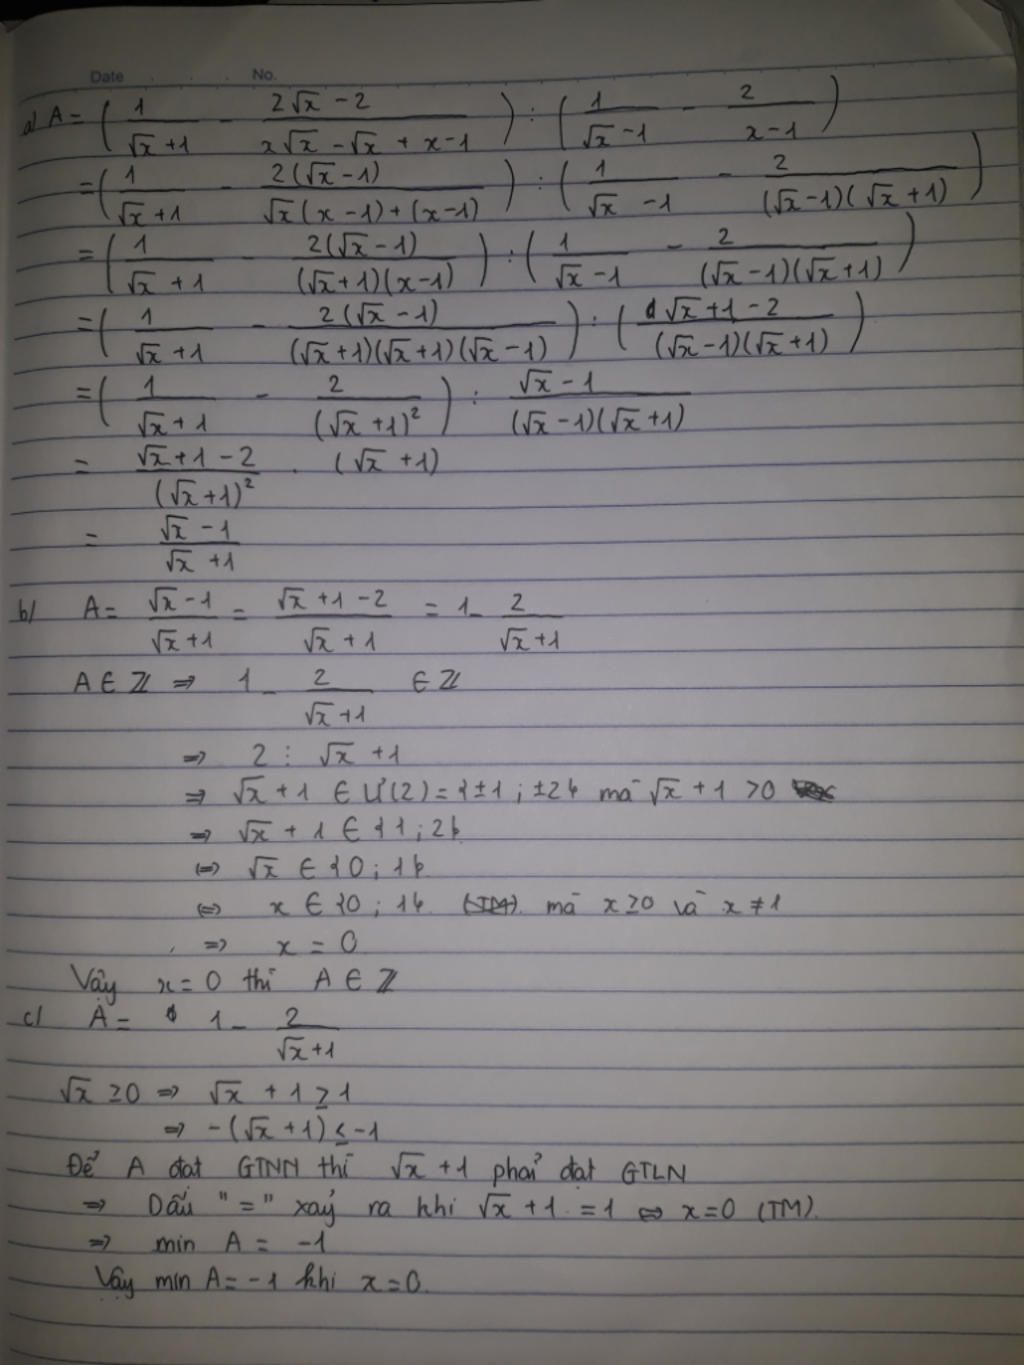 Date No.
a) A = ( 1/(√x +1) - (2√x - 2)/(x√x - √x + x - 1) ) : ( 1/(√x - 1) - 2/(x - 1) )
= ( 1/(√x +1) - 2(√x - 1)/(√x(x - 1) + (x - 1)) ) : ( 1/(√x - 1) - 2/((√x - 1)(√x + 1)) )
= ( 1/(√x + 1) - 2(√x - 1)/((√x+1)(x - 1)) ) : ( 1/(√x - 1) - 2/((√x - 1)(√x + 1)) )
= ( 1/(√x + 1) - 2(√x - 1)/((√x+1)(√x+1)(√x - 1)) ) : ( (√x + 1 - 2)/((√x - 1)(√x + 1)) )
= ( 1/(√x + 1) - 2/(√x + 1)² ) : (√x - 1)/((√x - 1)(√x + 1))
= (√x + 1 - 2)/(√x + 1)² . (√x + 1)
= (√x - 1)/(√x + 1)
b) A = (√x - 1)/(√x + 1) = (√x + 1 - 2)/(√x + 1) = 1 - 2/(√x + 1)
A ∈ Z ⇒ 1 - 2/(√x + 1) ∈ Z
⇒ 2 ⋮ √x + 1
⇒ √x + 1 ∈ Ư(2) = {±1 ; ±2} mà √x + 1 > 0
⇒ √x + 1 ∈ {1 ; 2}
⇔ √x ∈ {0 ; 1}
⇔ x ∈ {0 ; 1} (TM). mà x ≥ 0 và x ≠ 1
⇒ x = 0
Vậy x = 0 thì A ∈ Z
c) A = 1 - 2/(√x + 1)
√x ≥ 0 ⇒ √x + 1 ≥ 1
⇒ -(√x + 1) ≤ -1
Để A đạt GTNN thì √x + 1 phải đạt GTLN
⇒ Dấu "=" xảy ra khi √x + 1 = 1 ⇔ x = 0 (TM).
⇒ min A = -1
Vậy min A = -1 khi x = 0.